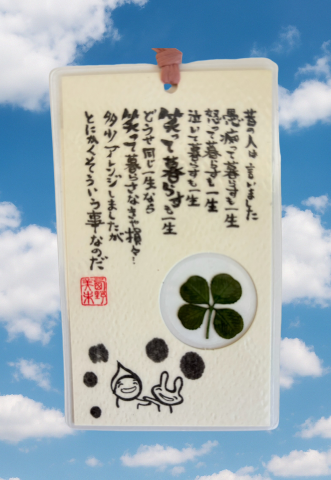 昔の人は言いました
愚痴って暮らすも一生
怒って暮らすも一生
泣いて暮らすも一生
笑って暮らすも一生
どうせ同じ一生なら
笑って暮らさなきゃ損々…
多少アレンジしましたが
とにかくそういう事なのだ